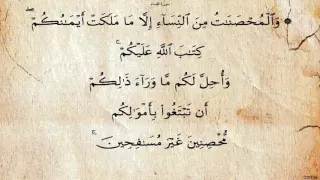 ۞ وَٱلْمُحْصَنَـٰتُ مِنَ ٱلنِّسَآءِ إِلَّا مَا مَلَكَتْ أَيْمَـٰنُكُمْ ۖ
كِتَـٰبَ ٱللَّهِ عَلَيْكُمْ ۚ
وَأُحِلَّ لَكُم مَّا وَرَآءَ ذَٰلِكُمْ
أَن تَبْتَغُوا۟ بِأَمْوَٰلِكُم
مُّحْصِنِينَ غَيْرَ مُسَـٰفِحِينَ ۚ